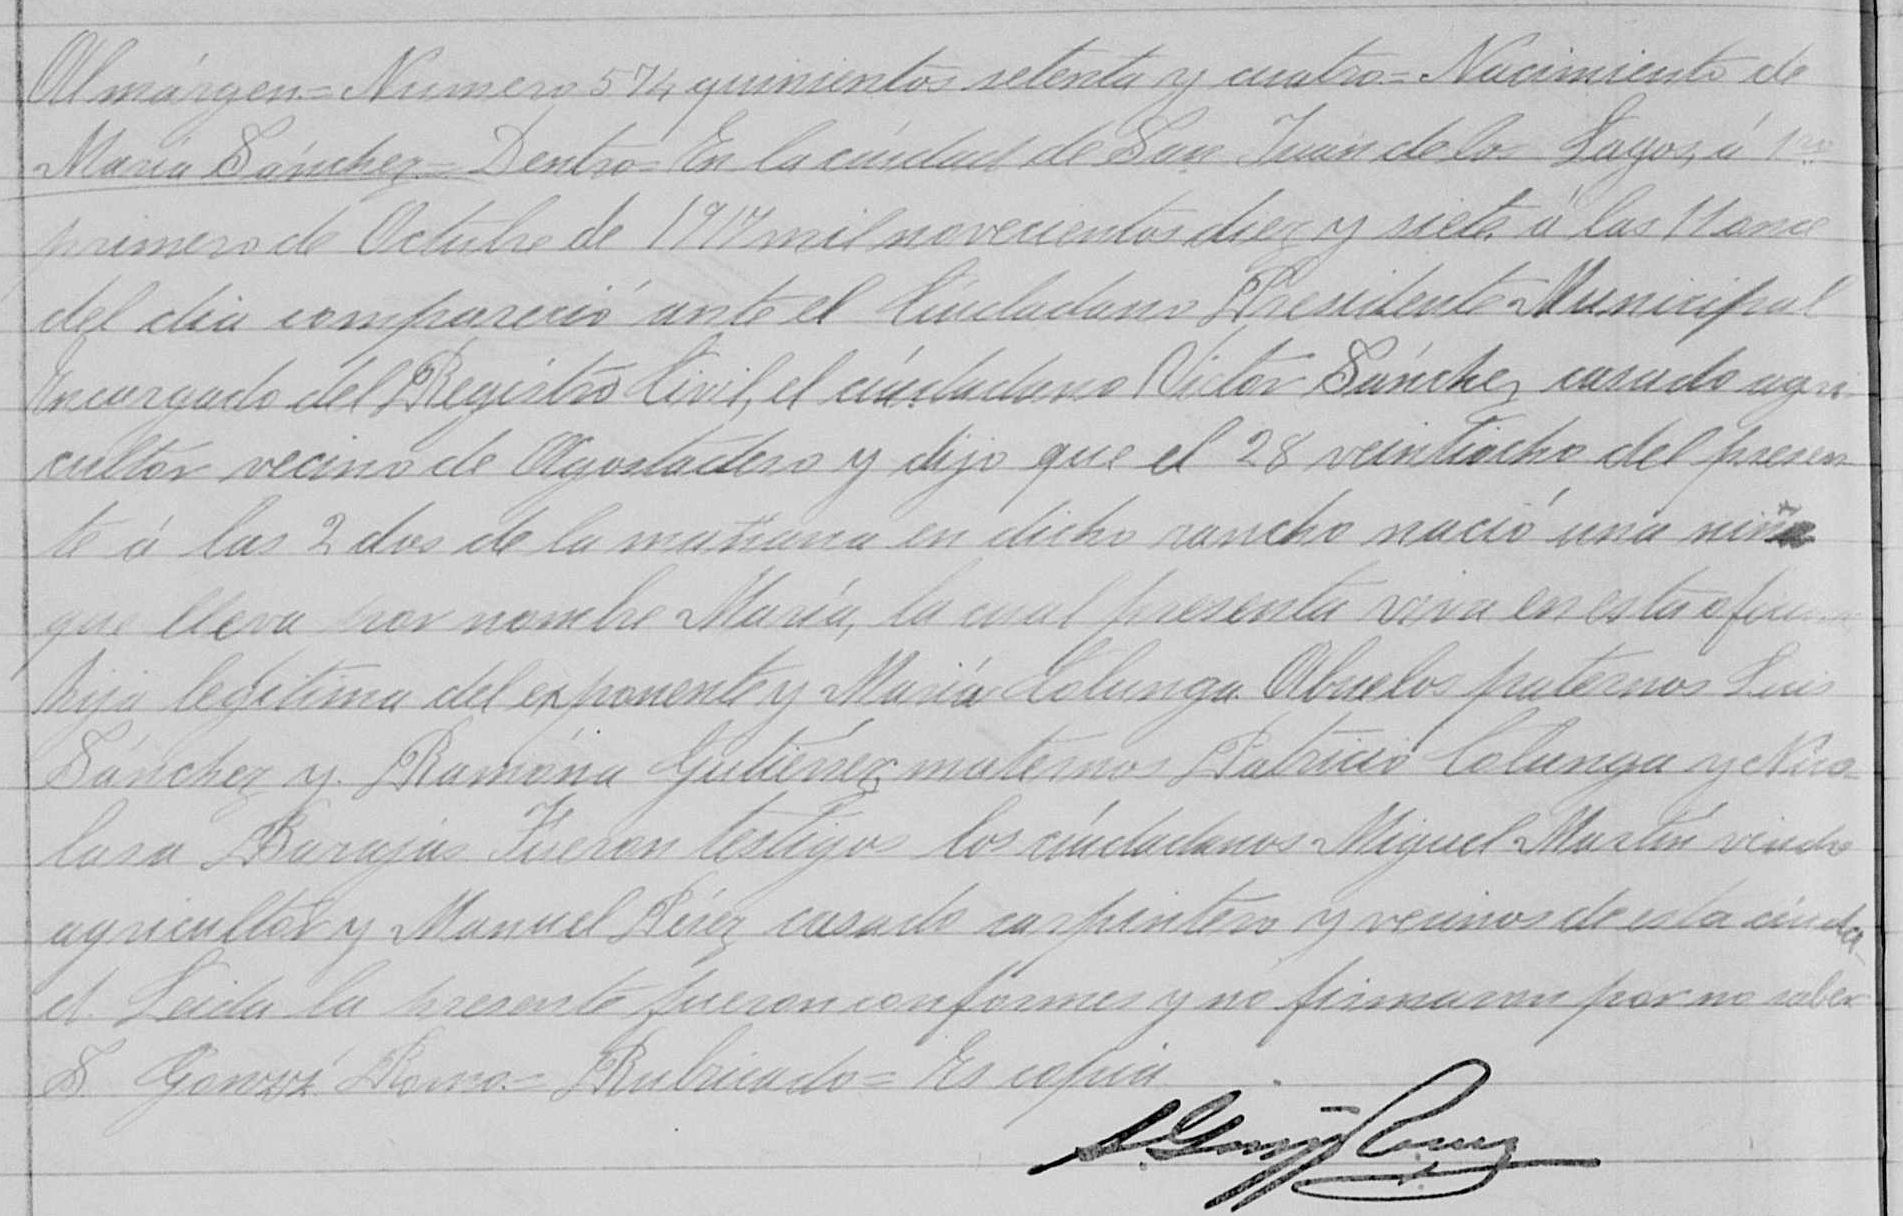 Al márgen.= Numero 574 quinientos setenta y cuatro= Nacimiento de
María Sánchez.= Dentro= En la ciudad de San Juan de los Lagos, á 1ro
primero de Octubre de 1917 mil novecientos diez y siete, á las 11 once
del dia compareció ante el Ciudadano Presidente Municipal
Encargado del Registro Civil, el ciudadano Victor Sánchez casado agri-
cultor vecino de Agostadero y dijo que el 28 veintiocho del presen
te á las 2 dos de la mañana en dicho rancho nació una niña
que lleva por nombre María, la cual presenta viva en esta
hija legitima del exponente y María Colunga. Abuelos paternos Luis
Sánchez y Ramóna Gutiérrez, maternos Patricio Colunga y Nico-
lasa Barajas Fueron testigos los ciudadanos Miguel Martín viudo
agricultor y Manuel Pérez casado carpintero y vecinos de esta ciuda-
d. Leida la presente fueron conformes y no firmaron por no saber
S. Romo.= Rubricado= Es copia